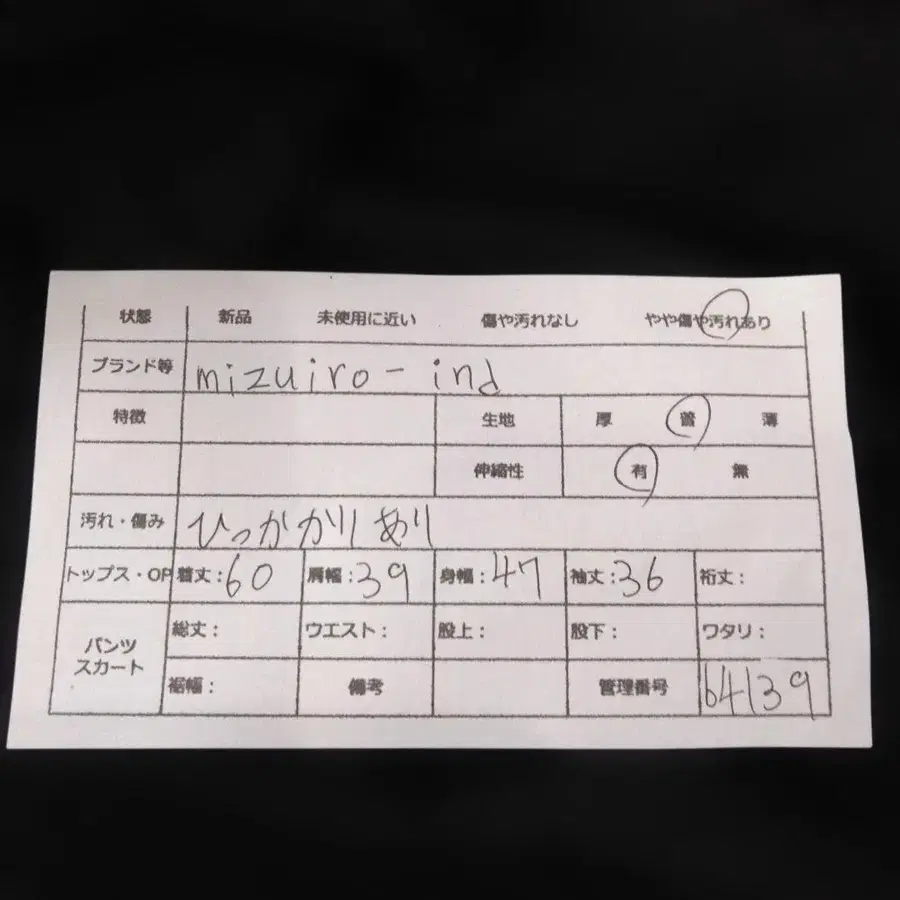 状態 新品 未使用に近い 傷や汚れなし やや傷や汚れあり
ブランド等 mizuiro-ind
特徴 生地 厚 普 薄
伸縮性 有 無
汚れ・傷み ひっかかりあり
トップス・OP 着丈:60 肩幅:39 身幅:47 袖丈:36 裄丈:
パンツ スカート 総丈: ウエスト: 股上: 股下: ワタリ:
裾幅: 備考 管理番号 64139